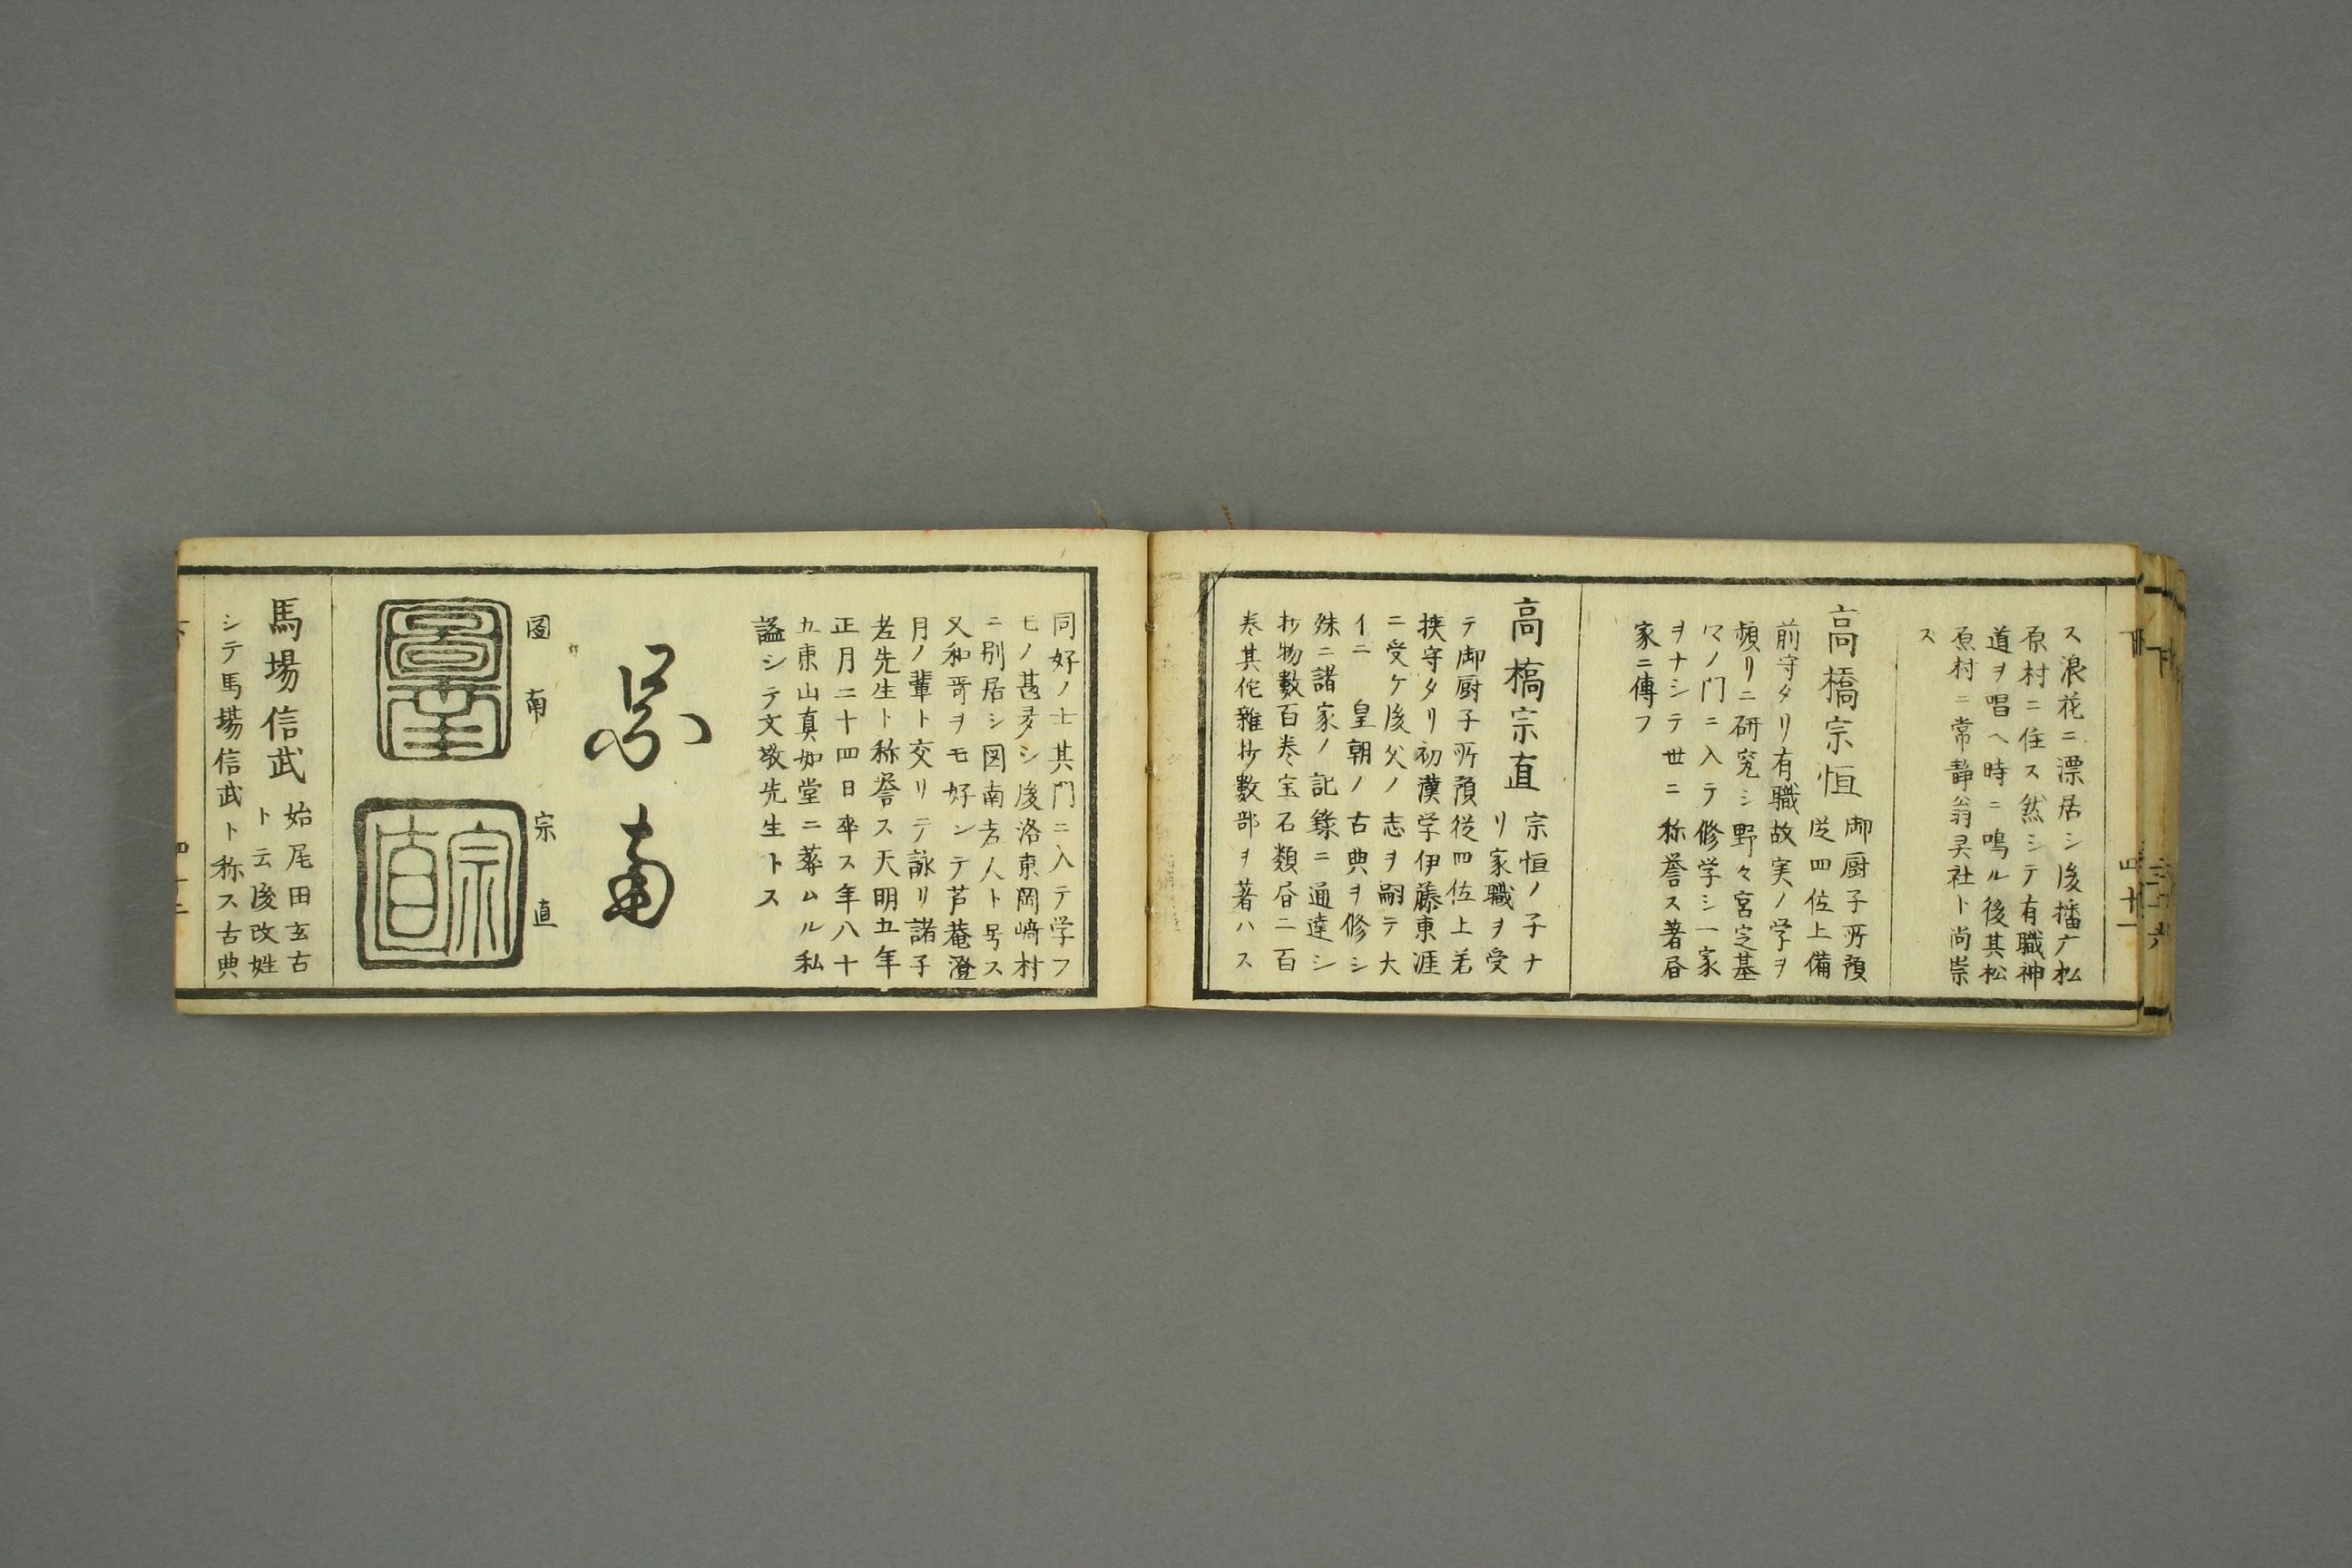 ス浪花ニ漂居シ後播广松
原村ニ住ス然シテ有職神
道ヲ唱ヘ時ニ鳴ル後其松
原村ニ常静翁灵社ト尚崇
ス
高橋宗恒
御厨子所預
従四位上備
前守タリ有職故実ノ学ヲ
頻リニ研究シ野々宮定基
マノ門ニ入テ修学シ一家
ヲナシテ世ニ称誉ス著昏
家ニ傳フ
高橋宗直
宗恒ノ子ナ
リ家職ヲ受
テ御厨子所預従四位上若
挟守タリ初漢学伊藤東涯
ニ受ケ後父ノ志ヲ嗣テ大
イニ 皇朝ノ古典ヲ修シ
殊ニ諸家ノ記録ニ通達シ
抄物數百巻宝石類昏二百
巻其佗雜抄數部ヲ著ハス
同好ノ士其門ニ入テ学フ
モノ甚多シ後洛東岡﨑村
ニ別居シ図南老人ト号ス
又和哥ヲモ好ンテ芦菴澄
月ノ輩ト交リテ詠リ諸子
老先生ト称誉ス天明五年
正月二十四日卒ス年八十
五東山真如堂ニ葬ムル私
謚シテ文敬先生トス
図南
圖南
宗直
宗直
馬場信武
始尾田玄古
ト云後改姓
シテ馬場信武ト称ス古典
下
四十一
四十二